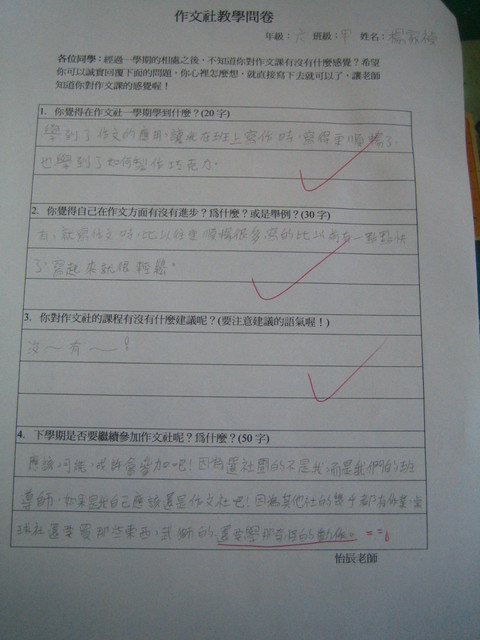 作文社教學問卷
年級：六 班級：甲 姓名：
各位同學：經過一學期的相處之後，不知道你對作文課有沒有什麼感覺？希望
你可以誠實回覆下面的問題，你心裡怎麼想，就直接寫下去就可以了，讓老師
知道你對作文課的感覺喔！
1. 你覺得在作文社一學期學到什麼？(20 字)
學到了作文的應用，讓我在班上寫作時，寫得更順暢了，
也學到了如何製作巧克力。
2. 你覺得自己在作文方面有沒有進步？為什麼？或是舉例？(30 字)
有，就寫作文時，比以往更順暢很多，寫的比以前有一點點快
了，寫起來就很輕鬆。
3. 你對作文社的課程有沒有什麼建議呢？(要注意建議的語氣喔！)
沒～有～！
4. 下學期是否要繼續參加作文社呢？為什麼？(50 字)
應該，可能，或許會參加吧！因為選社團的不是我，而是我們的班
導師，如果是我自己應該還是作文社吧！因為其他社的幾乎都有作業，
社還要買那些東西，武術的，還要學那
怡辰老師